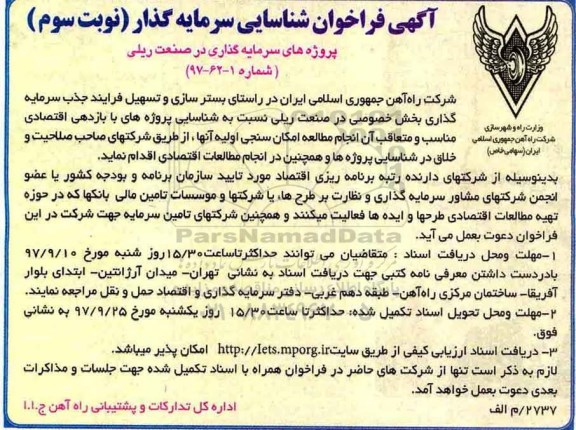 آگهی فراخوان شناسایی سرمایه گذار (نوبت سوم)
پروژه های سرمایه گذاری در صنعت ریلی
(شماره ۱-۶۲-۹۷)
وزارت راه و شهرسازی
شرکت راه آهن جمهوری اسلامی
ایران (سهامی خاص)
شرکت راه‌آهن جمهوری اسلامی ایران در راستای بستر سازی و تسهیل فرایند جذب سرمایه
گذاری بخش خصوصی در صنعت ریلی نسبت به شناسایی پروژه های با بازدهی اقتصادی
مناسب و متعاقب آن انجام مطالعه امکان سنجی اولیه آنها ، از طریق شرکتهای صاحب صلاحیت و
خلاق در شناسایی پروژه ها و همچنین در انجام مطالعات اقتصادی اقدام نماید.
بدینوسیله از شرکتهای دارنده رتبه برنامه ریزی اقتصاد مورد تایید سازمان برنامه و بودجه کشور یا عضو
انجمن شرکتهای مشاور سرمایه گذاری و نظارت بر طرح ها، یا شرکتها و موسسات تامین مالی بانکها که در حوزه
تهیه مطالعات اقتصادی طرحها و ایده ها فعالیت میکنند و همچنین شرکتهای تامین سرمایه جهت شرکت در این
فراخوان دعوت بعمل می آید.
ParsNamadData
۱-مهلت ومحل دریافت اسناد : متقاضیان می توانند حداکثرتاساعت۱۵/۳۰روز شنبه مورخ ۹۷/۹/۱۰
بادردست داشتن معرفی نامه کتبی جهت دریافت اسناد به نشانی تهران- میدان آرژانتین- ابتدای بلوار
آفریقا- ساختمان مرکزی راه‌آهن- طبقه دهم غربی- دفتر سرمایه گذاری و اقتصاد حمل و نقل مراجعه نمایند.
۲-مهلت ومحل تحویل اسناد تکمیل شده: حداکثرتا ساعت۱۵/۳۰ روز یکشنبه مورخ ۹۷/۹/۲۵ به نشانی
فوق.
۳- دریافت اسناد ارزیابی کیفی از طریق سایت http://iets.mporg.ir امکان پذیر میباشد.
لازم به ذکر است تنها از شرکت های حاضر در فراخوان همراه با اسناد تکمیل شده جهت جلسات و مذاکرات
بعدی دعوت بعمل خواهد آمد.
۲۷۳۷/م الف
اداره کل تدارکات و پشتیبانی راه آهن ج.ا.ا